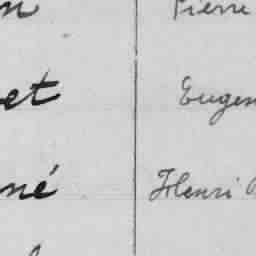 n Pierre
et Eugen
né Henri